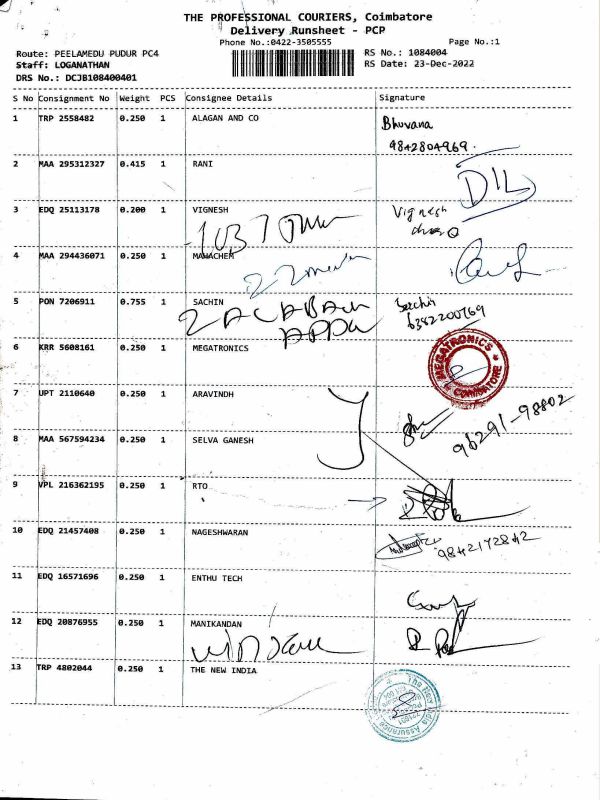 THE PROFESSIONAL COURIERS, Coimbatore
Delivery Runsheet - PCP
Phone No.:0422-3505555 Page No.:1
Route: PEELAMEDU PUDUR PC4 RS No.: 1084004
Staff: LOGANATHAN RS Date: 23-Dec-2022
DRS No.: DCJB108400401
S No Consignment No Weight PCS Consignee Details Signature
1 TRP 2558482 0.250 1 ALAGAN AND CO Bhuvana
9842804969.
2 MAA 295312327 0.415 1 RANI
3 EDQ 25113178 0.200 1 VIGNESH Vignesh
4 MAA 294436071 0.250 1 MAHACHEM
5 PON 7206911 0.755 1 SACHIN Sachin
6382200769
6 KRR 5608161 0.250 1 MEGATRONICS MEGATRONICS COIMBATORE
7 UPT 2110640 0.250 1 ARAVINDH
96291-98802
8 MAA 567594234 0.250 1 SELVA GANESH
9 VPL 216362195 0.250 1 RTO
10 EDQ 21457408 0.250 1 NAGESHWARAN
9842172842
11 EDQ 16571696 0.250 1 ENTHU TECH
12 EDQ 20876955 0.250 1 MANIKANDAN
13 TRP 4802044 0.250 1 THE NEW INDIA The New India Assurance